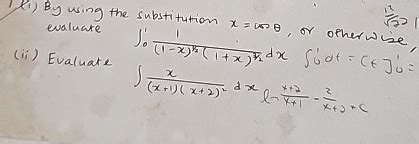 (i) By using the substitution x = cos θ, or otherwise,
evaluate ∫₀¹ 1/((1-x)^½ (1+x)^{3/2}) dx ∫₀¹ dt = [t]₀¹ =
(ii) Evaluate
∫ x/((x+1)(x+2)²) dx ln (x+2)/(x+1) - 2/(x+2) + c